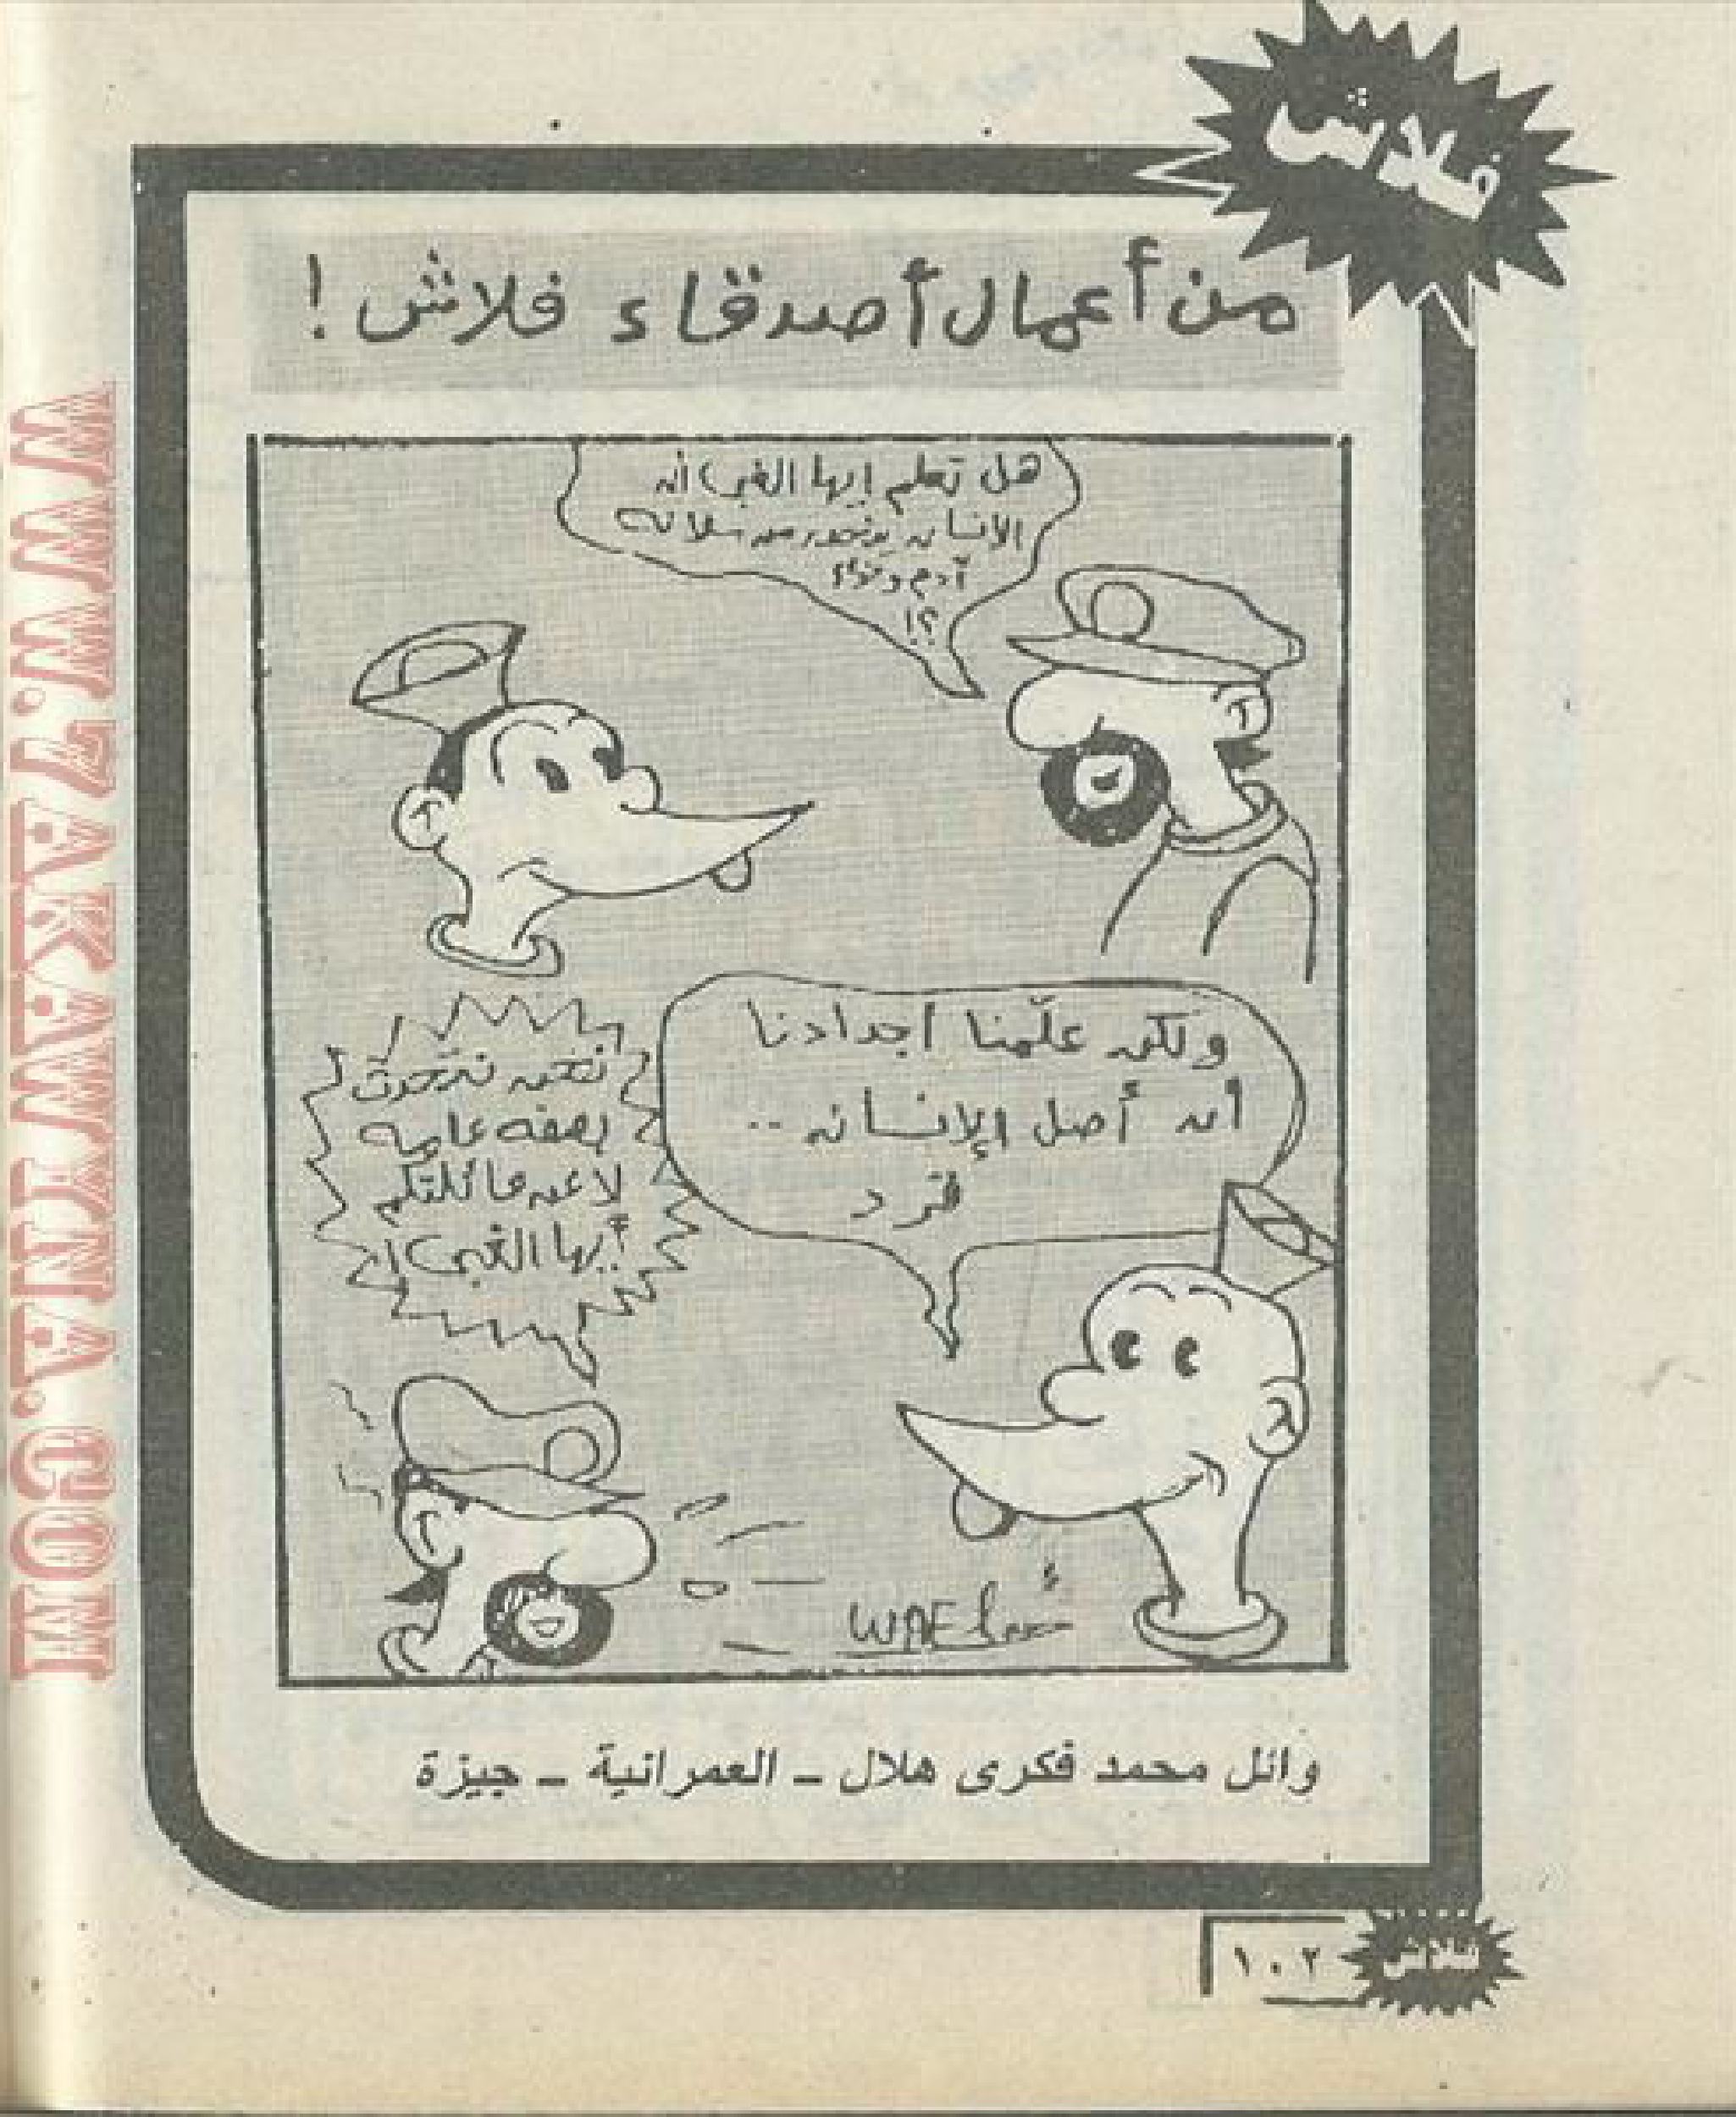 فلاش
من أعمال أصدقاء فلاش !
هل تعلم ايها الغبى ان
الانسان ينحدر من سلاله
آدم وحواء
؟!
ولكن علّمنا اجدادنا
أن أصل الإنسان ..
قرد
نحن نتحدث
بصفه عامه
لا عن عائلتكم
أيها الغبى !!
WAEL
وائل محمد فكرى هلال ـ العمرانية ـ جيزة
فلاش
١٠٢
WWW.7AKAWTNA.COM